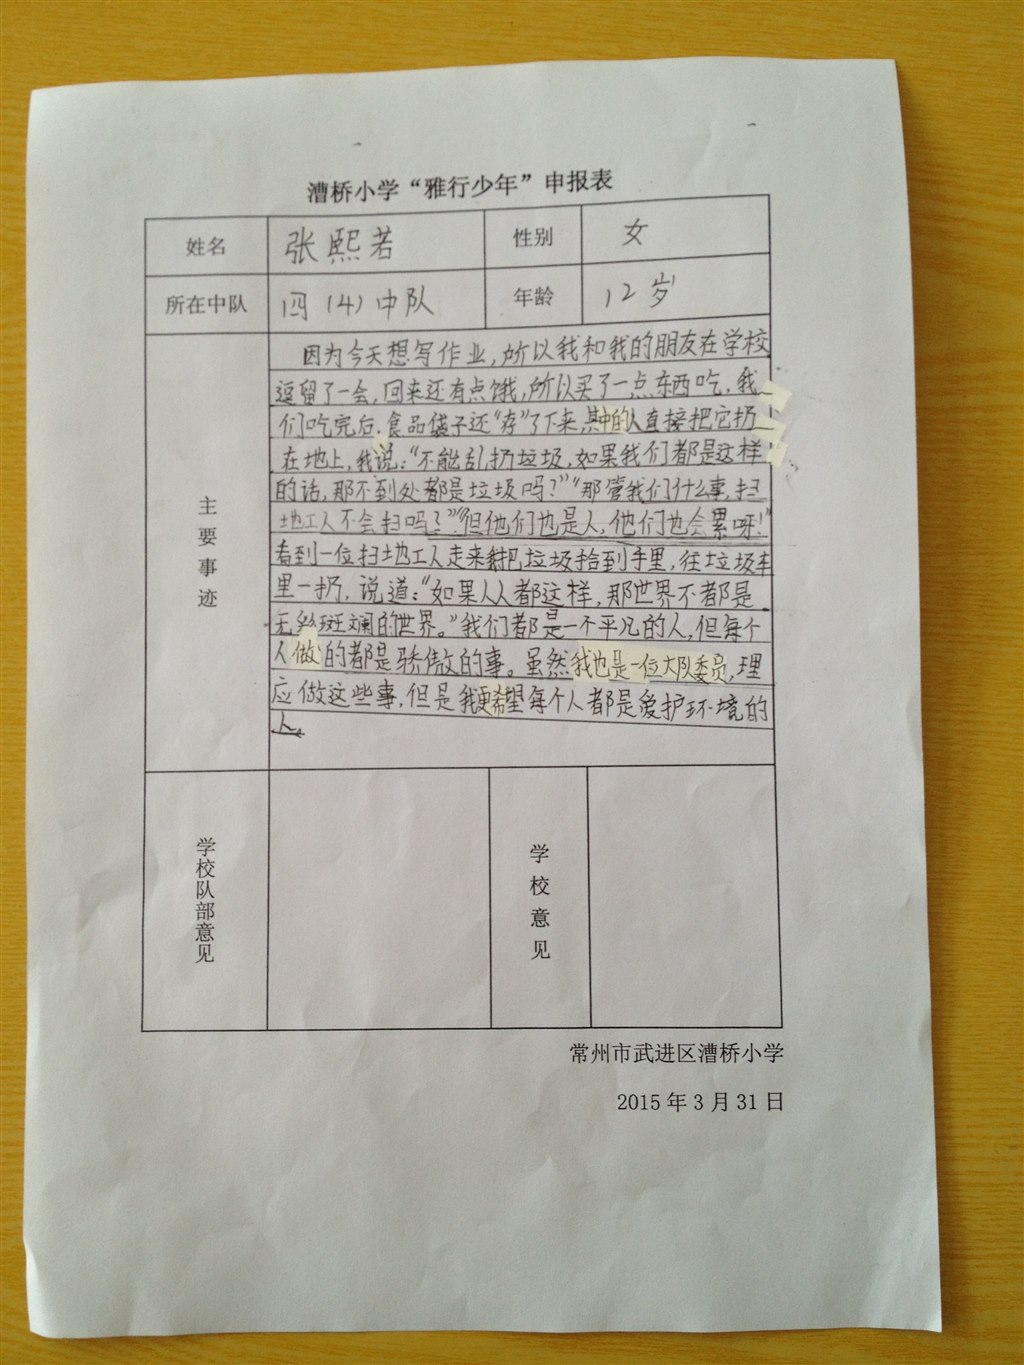 漕桥小学“雅行少年”申报表
姓名 张熙若 性别 女
所在中队 四（4）中队 年龄 12岁
主要事迹
因为今天想写作业，所以我和我的朋友在学校
逗留了一会，回来还有点饿，所以买了一点东西吃．我
们吃完后．食品袋子还“存”了下来，其中的人直接把它扔
在地上，我说：“不能乱扔垃圾，如果我们都是这样
的话，那不到处都是垃圾吗？”“那管我们什么事，扫
地工人不会扫吗？”“但他们也是人，他们也会累呀！”
看到一位扫地工人走来 把垃圾拾到手里，往垃圾车
里一扔，说道：“如果人人都这样，那世界不都是
五彩斑斓的世界。”我们都是一个平凡的人，但每个
人做的都是骄傲的事。虽然我也是一位大队委员，理
应做这些事，但是我更希望每个人都是爱护环境的
人
学校队部意见 学校意见
常州市武进区漕桥小学
2015年3月31日